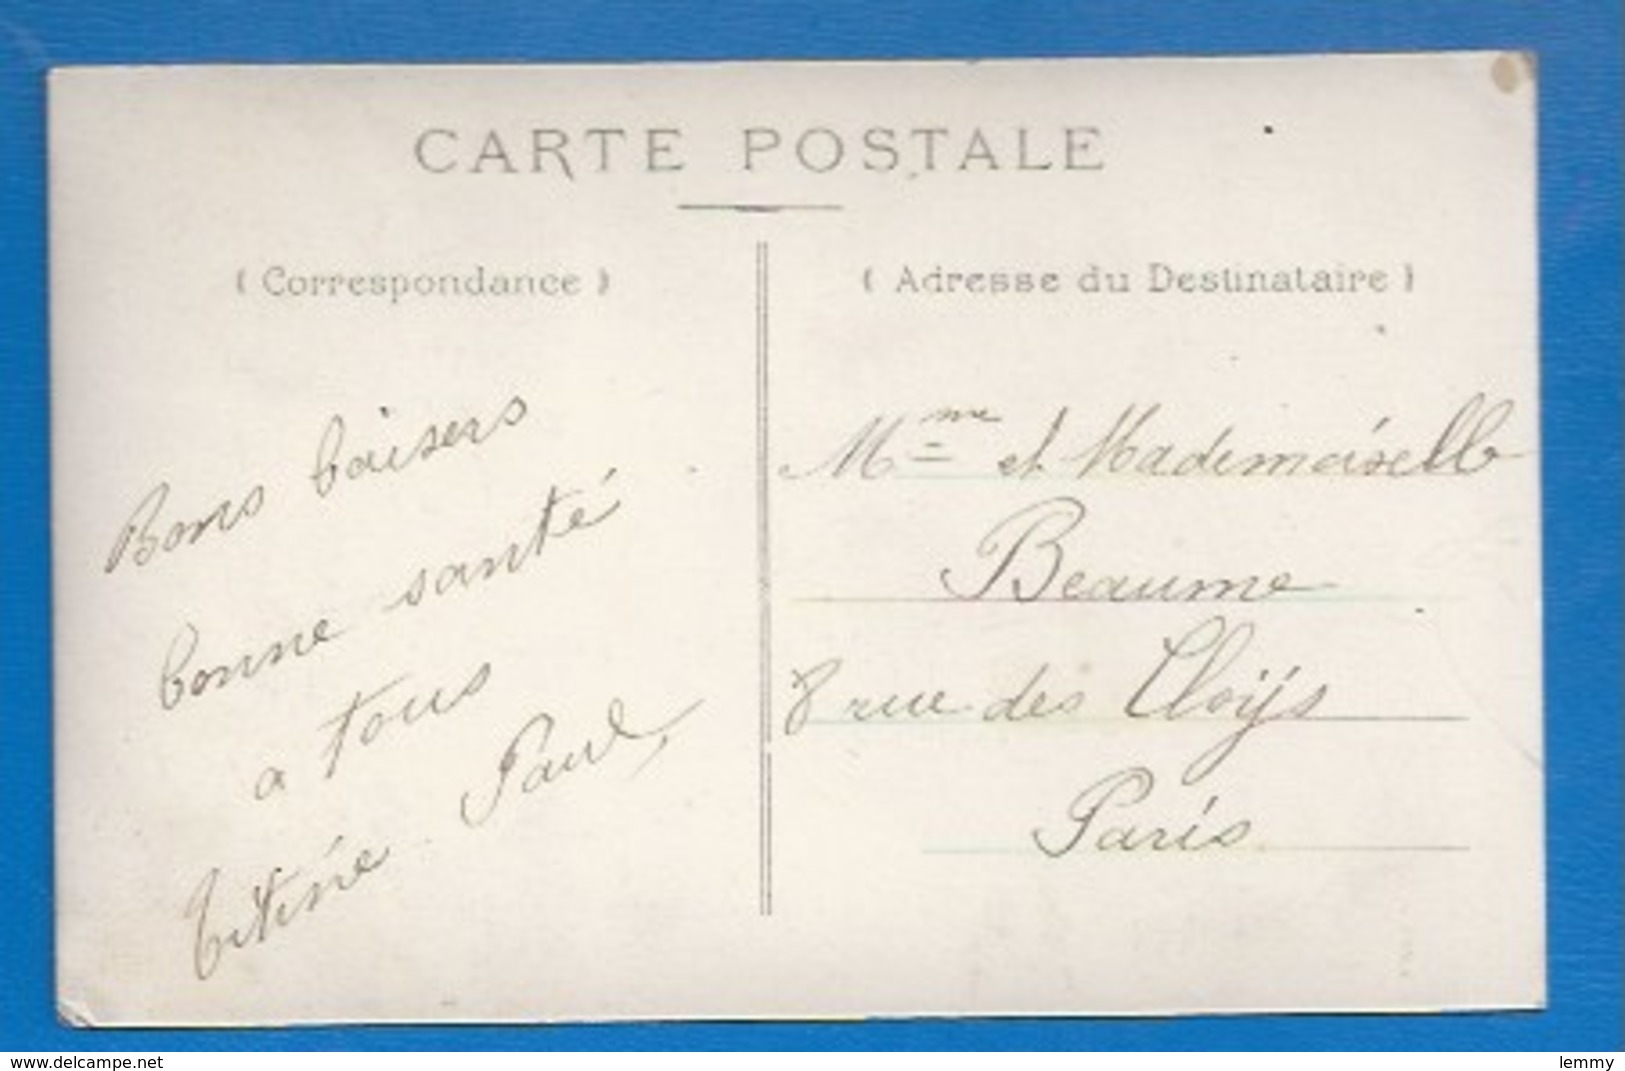 CARTE POSTALE
( Correspondance )
Bons baisers
bonne santé
a tous
Titine Paul
( Adresse du Destinataire )
Mme et Mademoiselle
Beaume
8 rue des Cloijs
Paris
www.delcampe.net
lemmy